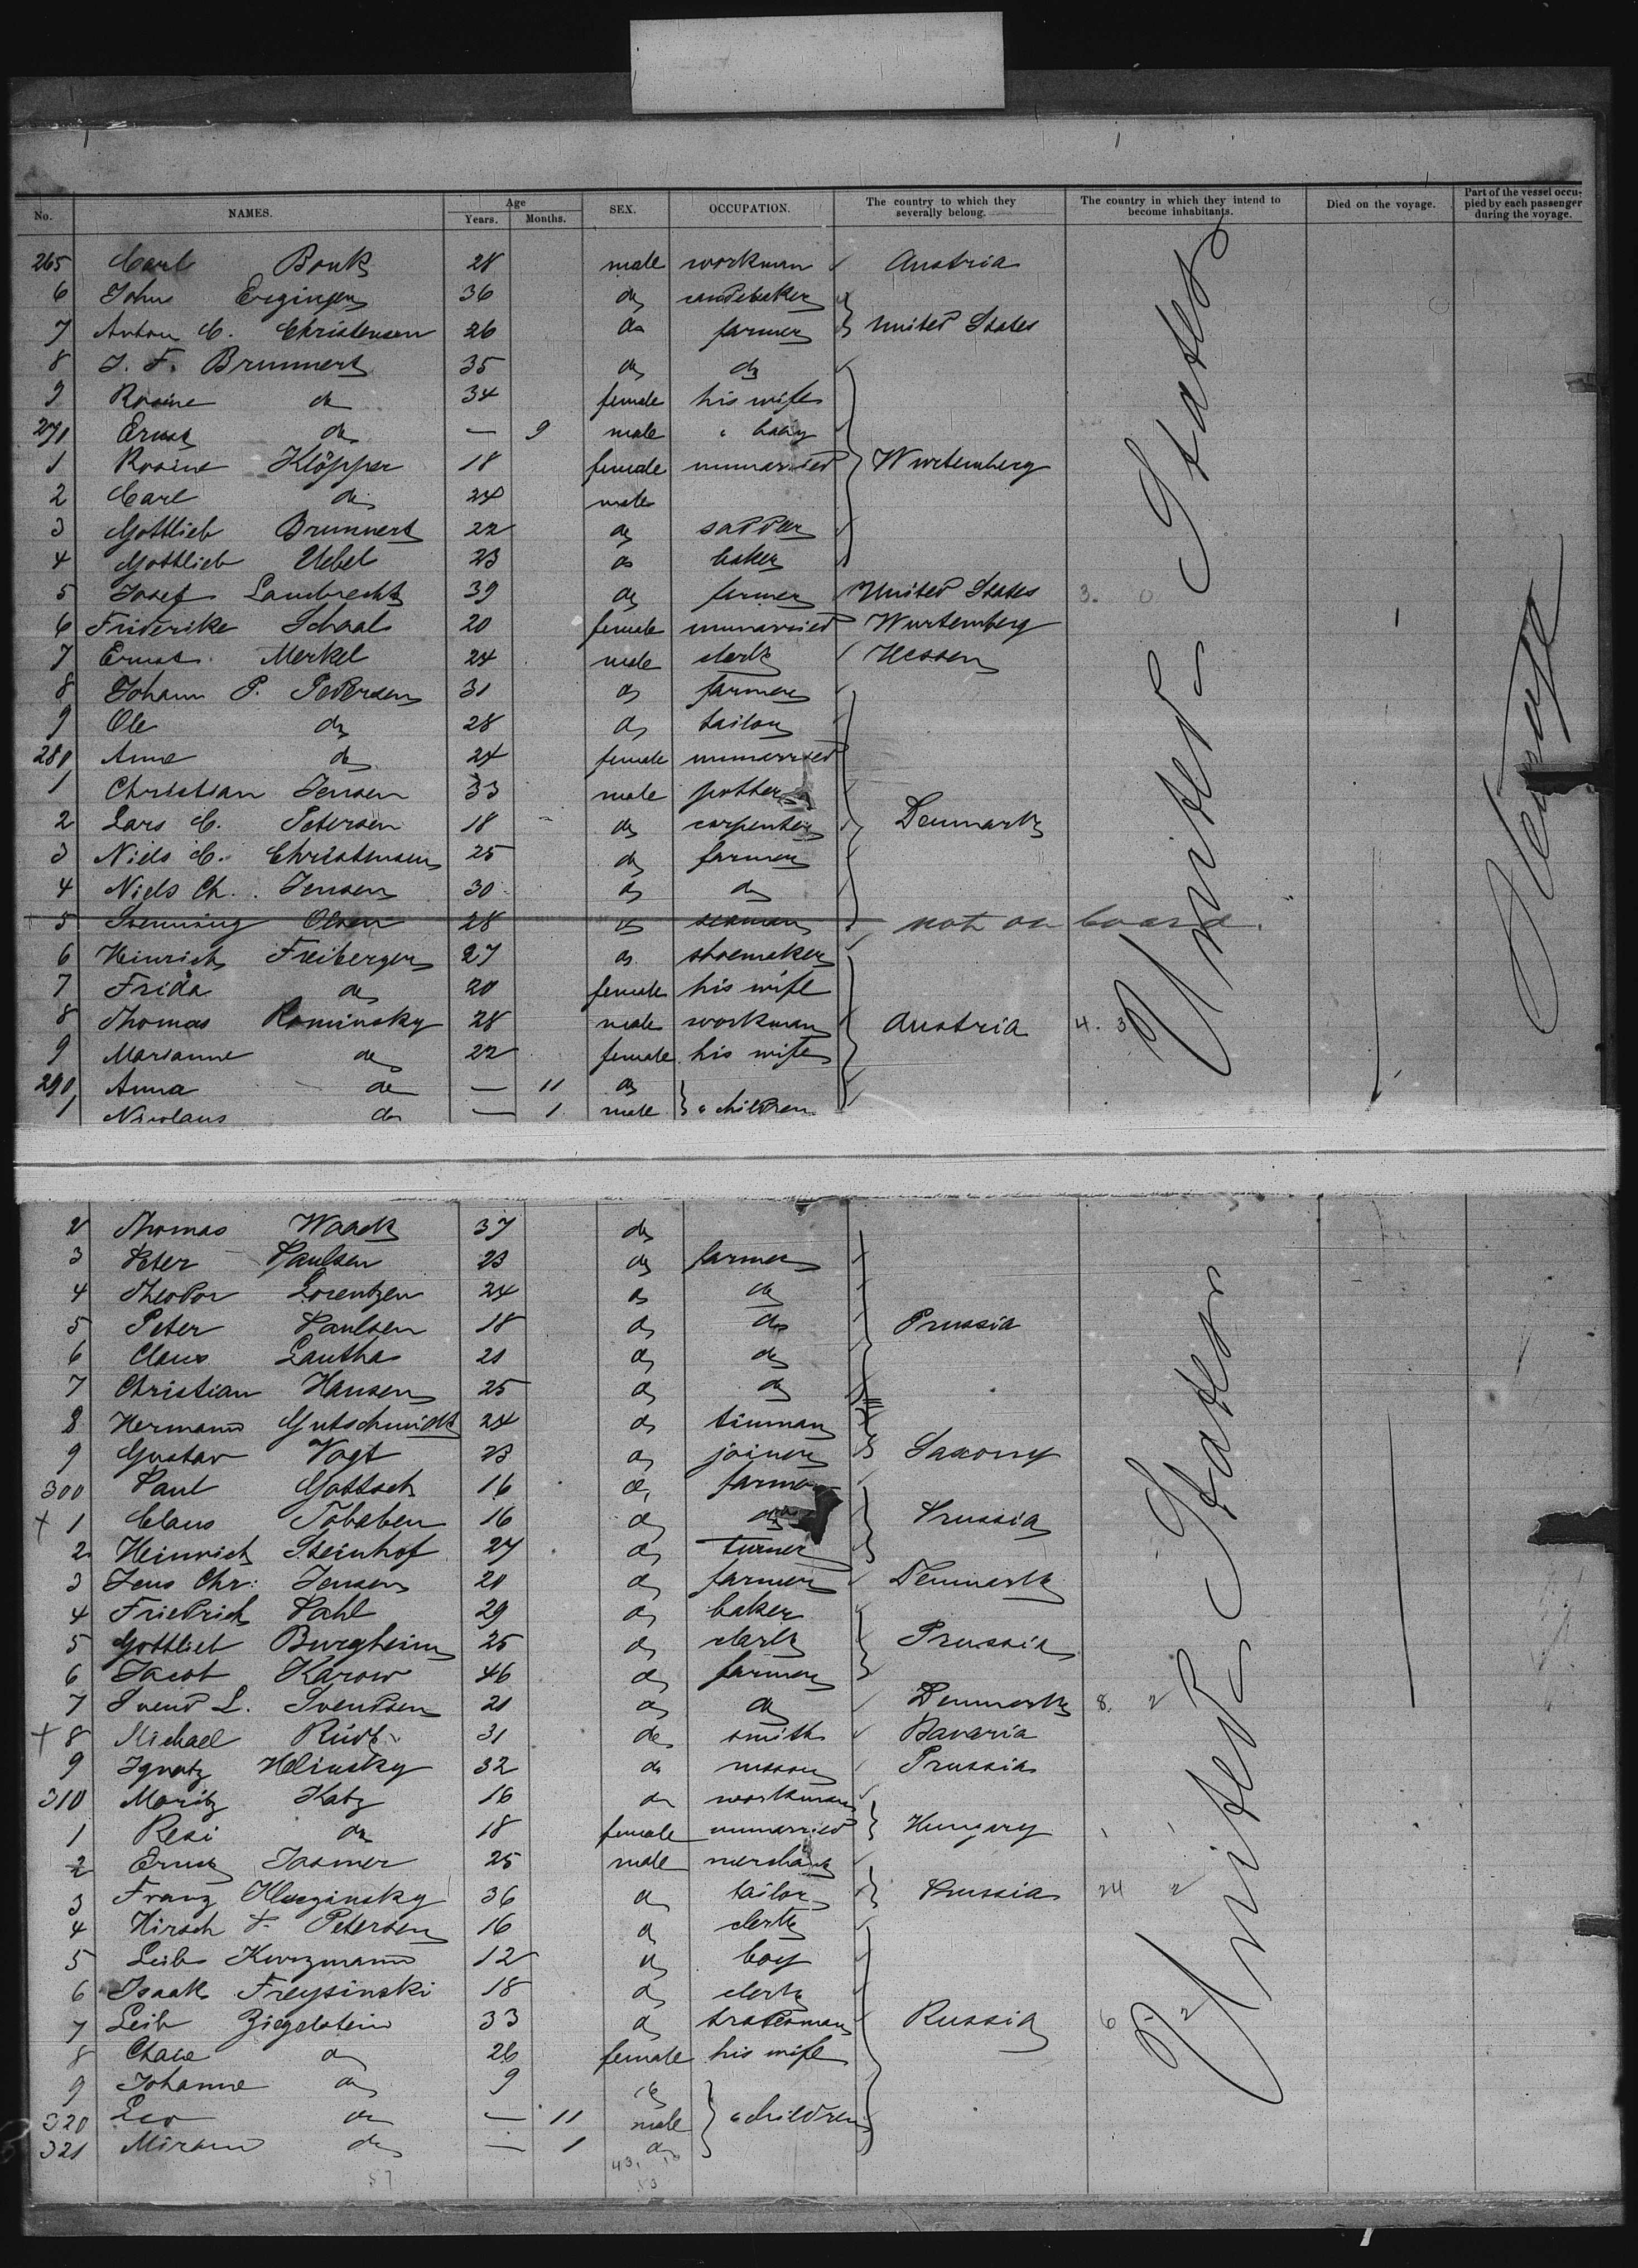 No. NAMES. Age Years. Months. SEX. OCCUPATION. The country to which they severally belong. The country in which they intend to become inhabitants. Died on the voyage. Part of the vessel occupied by each passenger during the voyage.
265 Carl Bonk 28 male workman Austria
6 John 36 do
7 Anton C. Christensen 26 do farmer United States
8 J. F. Brunnert 35 do do
9 Rosine do 34 female his wife
270 Ernst do — 9 male " baby
1 Rosine Klöpper 18 female unmarried Wurtemberg
2 Carl do 24 male
3 Gottlieb Brunnert 22 do saddler
4 Gottlieb Uebel 23 do baker
5 Josef Lambrecht 39 do farmer United States 3. 0
6 Friderike Schaal 20 female unmarried Wurtemberg
7 Ernst Merkel 24 male clerk Hessen
8 Johann P. Pedersen 31 do farmer
9 Ole do 28 do tailor
280 Anne do 24 female unmarried
1 Christian Jensen 33 male potter
2 Lars C. Petersen 18 do carpenter Denmark
3 Niels C. Christensen 25 do farmer
4 Niels Ch. Jensen 30 do do
5 Olsen 28 do seaman not on board.
6 Heinrich Freiberger 27 do shoemaker
7 Frida do 20 female his wife
8 Thomas Rominsky 28 male workman Austria 4. 3
9 Marianne do 22 female his wife
290 Anna do — 11 do
1 Nicolaus do — 1 male " children
United States
Steerage
2 Thomas Waack 37 do
3 Peter Paulsen 23 do farmer
4 Theodor Lorentzen 24 do do
5 Peter Paulsen 18 do do Prussia
6 Claus Lautha 21 do do
7 Christian Hansen 25 do do
8 Hermann Gutschmidt 24 do tinman
9 Gustav Vogt 23 do joiner Saxony
300 Paul Gottsch 16 do farmer
+ 1 Claus Tobaben 16 do do Prussia
2 Heinrich Steinhof 27 do turner
3 Jens Chr. Jensen 20 do farmer Denmark
4 Friedrich Pahl 29 do baker
5 Gottlieb Burgheim 25 do clerk Prussia
6 Jacob Karow 46 do farmer
7 Svend L. Svendsen 21 do do Denmark 8. 2
+ 8 Michael 31 do smith Bavaria
9 Ignatz Helinsky 32 do mason Prussia
310 Moritz Katz 16 do workman
1 Resi do 18 female unmarried Hungary
2 Ernst Jasmer 25 male merchant
3 Franz 36 do tailor Prussia 24 2
4 Hirsch Petersen 16 do clerk
5 Leib Kurzmann 12 do boy
6 Isaak Freysinski 18 do clerk
7 Leib Ziegelstein 33 do tradesman Russia 6 2
8 do 26 female his wife
9 Johanne do 9 do
320 Leo do — 11 male " children
321 do — 1 do
United States